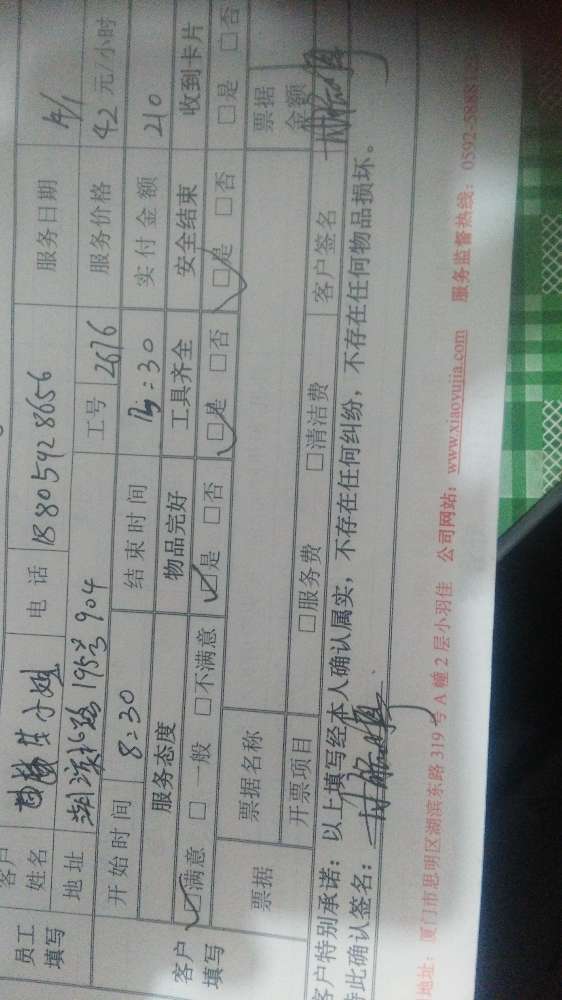 员工填写
客户姓名 小姐 电话 18805928656 服务日期 4/1
地址 湖滨北路195号904 工号 2676 服务价格 42 元/小时
开始时间 8:30 结束时间 :30 实付金额 210
客户填写
服务态度 物品完好 工具齐全 安全结束 收到卡片
☑满意 □一般 □不满意 ☑是 □否 ☑是 □否 ☑是 □否 □是 □否
票据 票据名称 票据金额
开票项目 □服务费 □清洁费 客户签名
客户特别承诺：以上填写经本人确认属实，不存在任何纠纷，不存在任何物品损坏。
特此确认签名：
地址：厦门市思明区湖滨东路319号A幢2层小羽佳 公司网站：www.xiaoyujia.com 服务监督热线：0592-5888